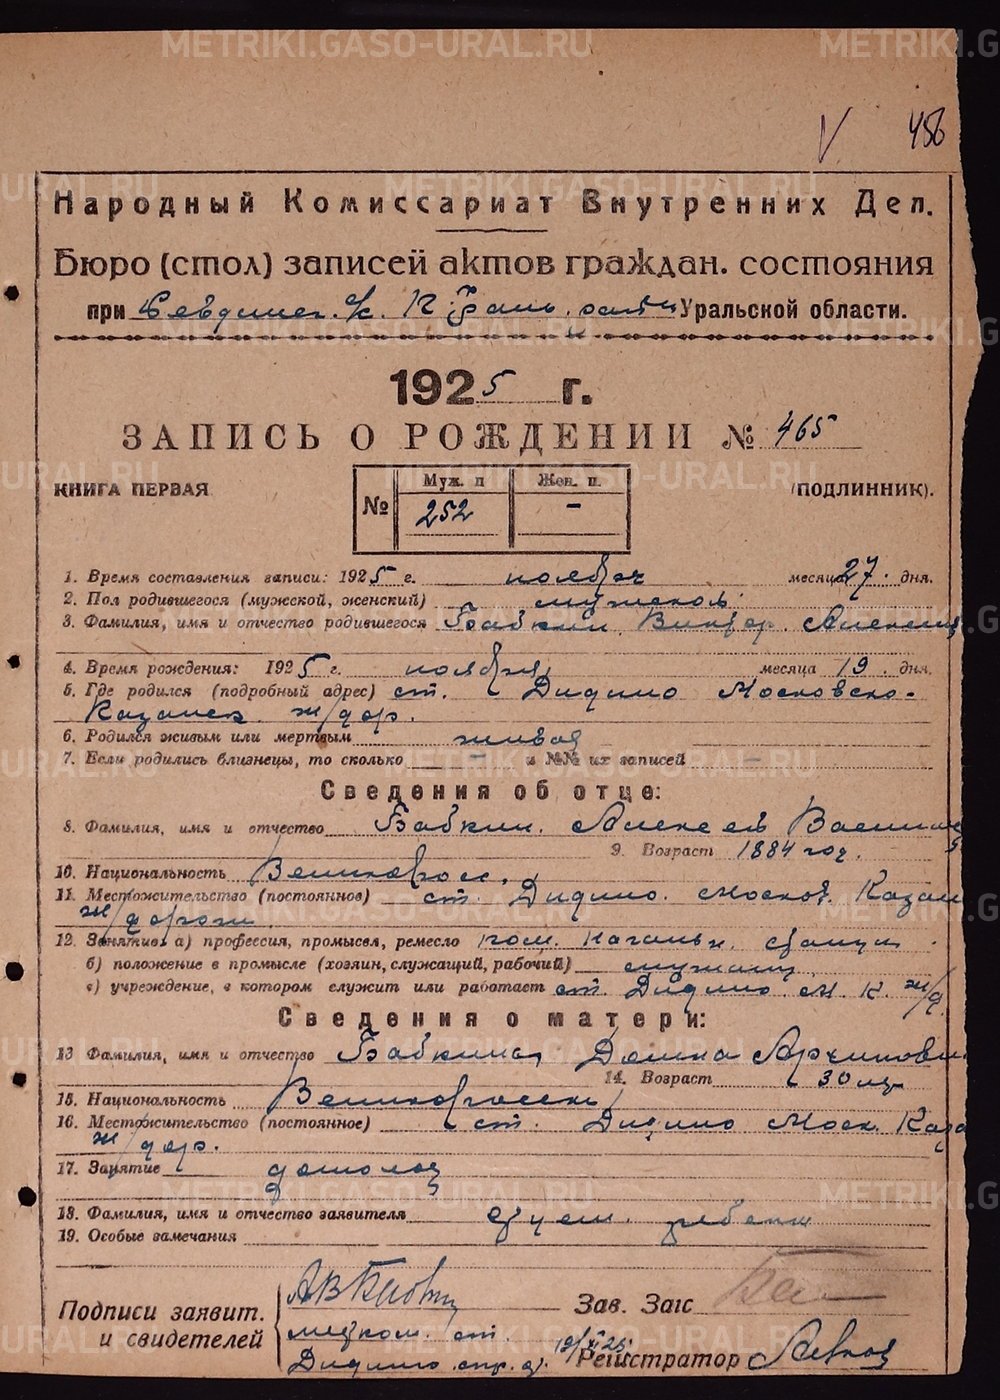 METRIKI.GASO-URAL.RU
456
Народный Комиссариат Внутренних Дел.
Бюро (стол) записей актов граждан. состояния
при Уральской области.
1925 г.
ЗАПИСЬ О РОЖДЕНИИ № 465
КНИГА ПЕРВАЯ (ПОДЛИННИК).
№ Муж. п Жен. п.
252 –
1. Время составления записи: 1925 г. ноября месяца 27 дня.
2. Пол родившегося (мужской, женский) мужской
3. Фамилия, имя и отчество родившегося Бабкин Виктор Алексеев
4. Время рождения: 1925 г. ноября месяца 19 дня.
5. Где родился (подробный адрес) ст. Дидино Московско-
Казанск. ж/дор.
6. Родился живым или мертвым живой
7. Если родились близнецы, то сколько – и №№ их записей –
Сведения об отце:
8. Фамилия, имя и отчество Бабкин Алексей Васильев
9. Возраст 1884 год.
10. Национальность Великоросс.
11. Местожительство (постоянное) ст. Дидино Москов. Казан
ж/дороги
12. Занятие: а) профессия, промысел, ремесло пом. Начальн. станции
б) положение в промысле (хозяин, служащий, рабочий) служащий
в) учреждение, в котором служит или работает ст. Дидино М. К. ж/д.
Сведения о матери:
13 Фамилия, имя и отчество Бабкина Домна Архипов
14. Возраст 30 лет
15. Национальность Великоросск
16. Местожительство (постоянное) ст. Дидино Моск. Каза
ж/дор.
17. Занятие домохоз
18. Фамилия, имя и отчество заявителя отец ребенка
19. Особые замечания
Подписи заявит. Зав. Загс
и свидетелей ст.
Дидино Регистратор